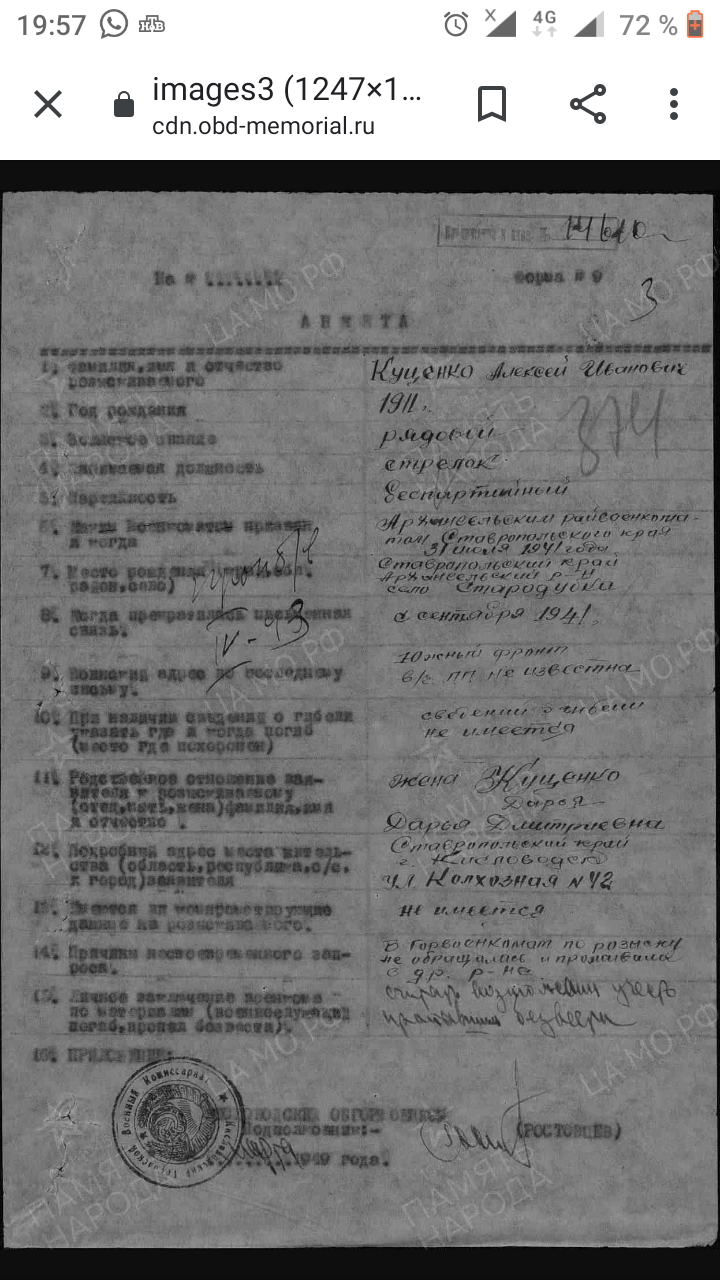 19:57
4G
72 %
images3 (1247×1...
cdn.obd-memorial.ru
Форма # 9
3
АНКЕТА
1. Фамилия, имя и отчество
розыскиваемого
Куценко Алексей Иванович
2. Год рождения
1911.
374
3. Воинское звание
рядовой
4. Занимаемая должность
стрелок
5. Партийность
беспартийный
6. Каким военкоматом призван
и когда
Архангельским райвоенкома-
том Ставропольского края
31 июля 1941 года
7. Место рождения
район, село)
Ставропольский край
Архангельский р-н
село Стародубка
8. Когда прекратилась письменная
связь.
с сентября 1941.
IV-43
9. Воинский адрес по последнему
письму.
Южный фронт
в/с пп не известна
10. При наличии сведений о гибели
указать где и когда погиб
(место где похоронен)
сведений о гибели
не имеется
11. Родственное отношение зая-
вителя к розыскиваемому
(отец, мать, жена) фамилия, имя
и отчество.
жена Куценко
Дарья
Дарья Дмитриевна
12. Подробный адрес места житель-
ства (область, республика, с/с.
и город) заявителя
Ставропольский край
г. Кисловодск
ул Колхозная № 42
13. Имеются ли компрометирующие
данные на розыскиваемого.
не имеется
14. Причины несвоевременного зап-
роса.
В горвоенкомат по розыску
не обращалась и проживала
в др. р-не
15. Личное заключение военкома
по материалам (военнослужащий
погиб, пропал безвести).
считаю возможным учесть
пропавшим безвести
16. ПРИЛОЖЕНИЕ:
КИСЛОВОДСКИЙ ОБГОРВОЕНКОМ
Подполковник:-
(РОСТОВЦЕВ)
1949 года.
ЦАМО РФ
ПАМЯТЬ
НАРОДА